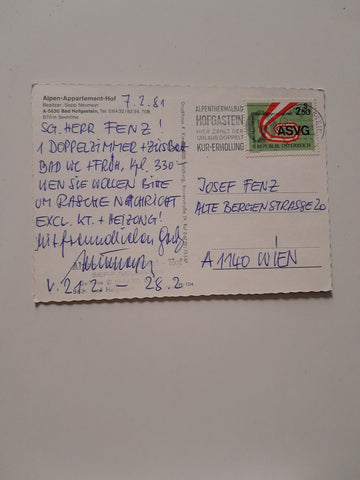 Alpen-Appartement-Hof
Besitzer: Sepp Neumayr
A-5630 Bad Hofgastein, Tel. 06432/8234, 708
870 m Seehöhe
7.2.81
SG. HERR FENZ!
1 DOPPELZIMMER + ZUSBett
BAD WC + FRÜH, Kpl. 330-
WEN SIE WOLLEN BITTE
UM RASCHE NACHRICHT
EXCL. KT. + HEIZONG!
Mit freundlichen
V. 21.2. - 28.2
ALPENTHERMALBAD
HOFGASTEIN
HIER ZÄHLT DER
URLAUB DOPPELT
KUR-ERHOLUNG
2.50
ASVG
REPUBLIK ÖSTERREICH
JOSEF FENZ
ALTE BERGENSTRASSE 20
A 1140 WIEN